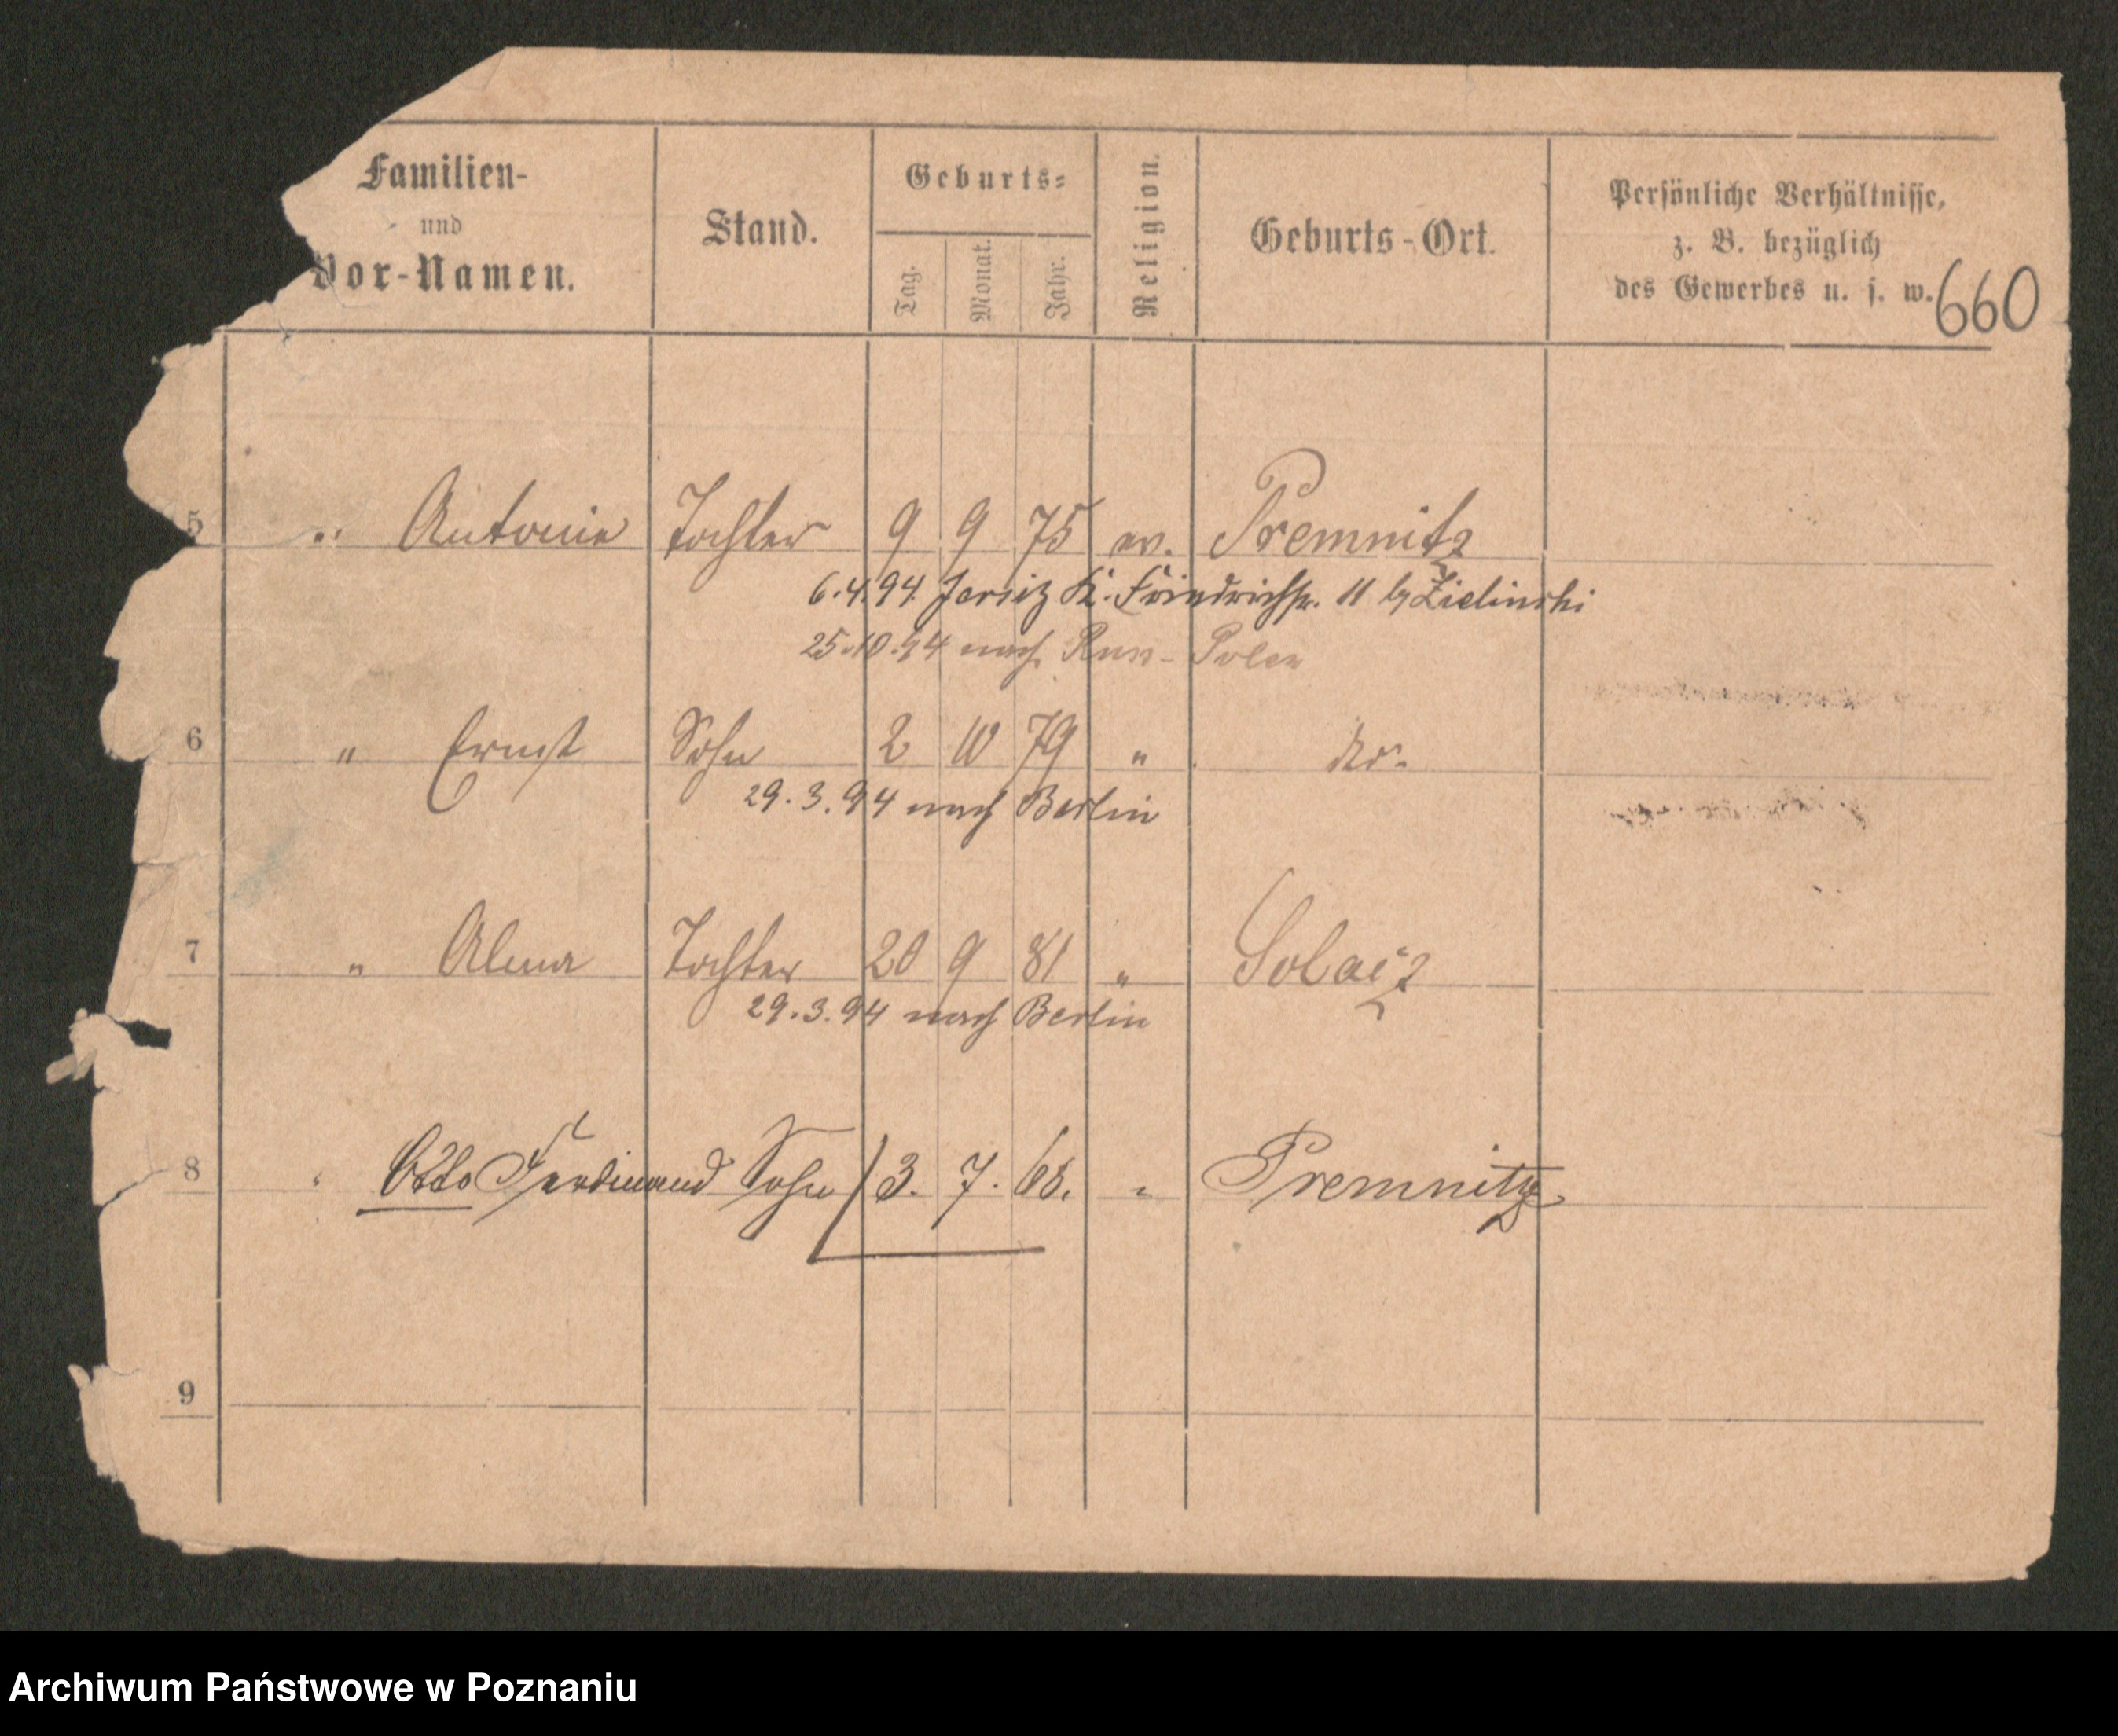 Familien-
und
Vor-Namen.
Stand.
Geburts-
Tag.
Monat.
Jahr.
Religion.
Geburts-Ort.
Persönliche Verhältnisse,
z. B. bezüglich
des Gewerbes u. s. w.
660
5 " Antonie Tochter 9 9 75 ev. Premnitz
6.4.94 Jersitz K. Friedrichstr. 11 b/ Zielinski
25.10.94 nach Russ-Polen
6 " Ernst Sohn 2 10 79 " do.
29.3.94 nach Berlin
7 " Alma Tochter 20 9 81 " Solacz
29.3.94 nach Berlin
8 " Otto Ferdinand Sohn 3. 7. 68. " Premnitz
9
Archiwum Państwowe w Poznaniu